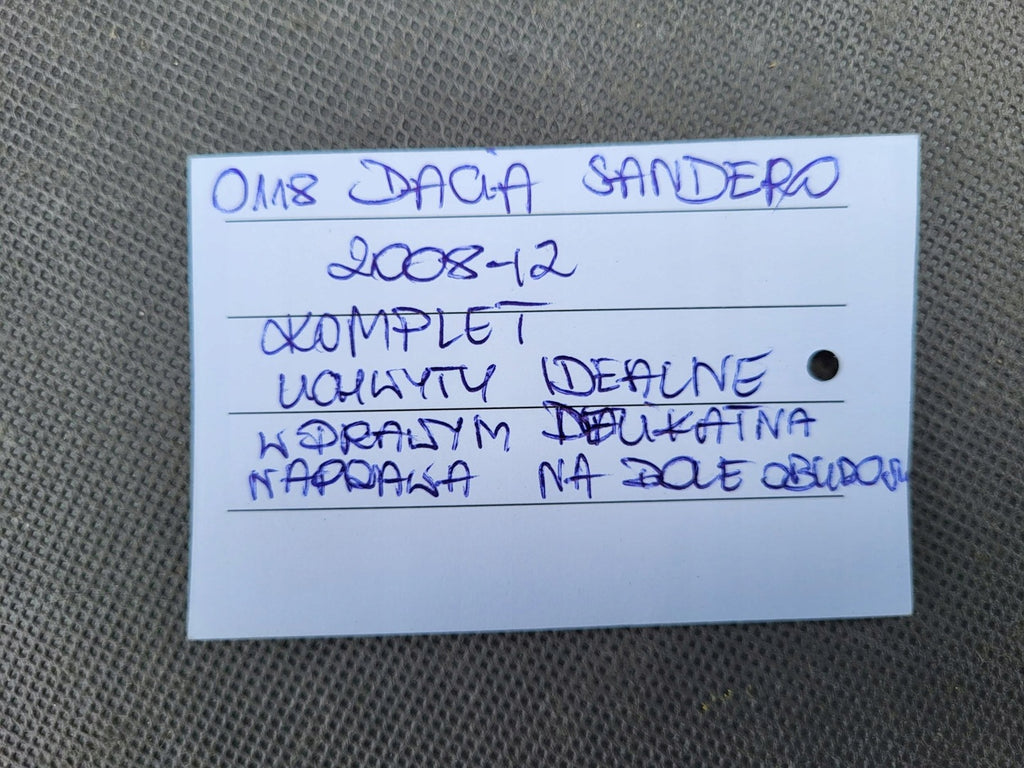 0118 DACIA SANDERO
2008-12
KOMPLET
UCHWYTY IDEALNE
W PRAWYM DELIKATNA
NAPRAWA NA DOLE OBUDOWY